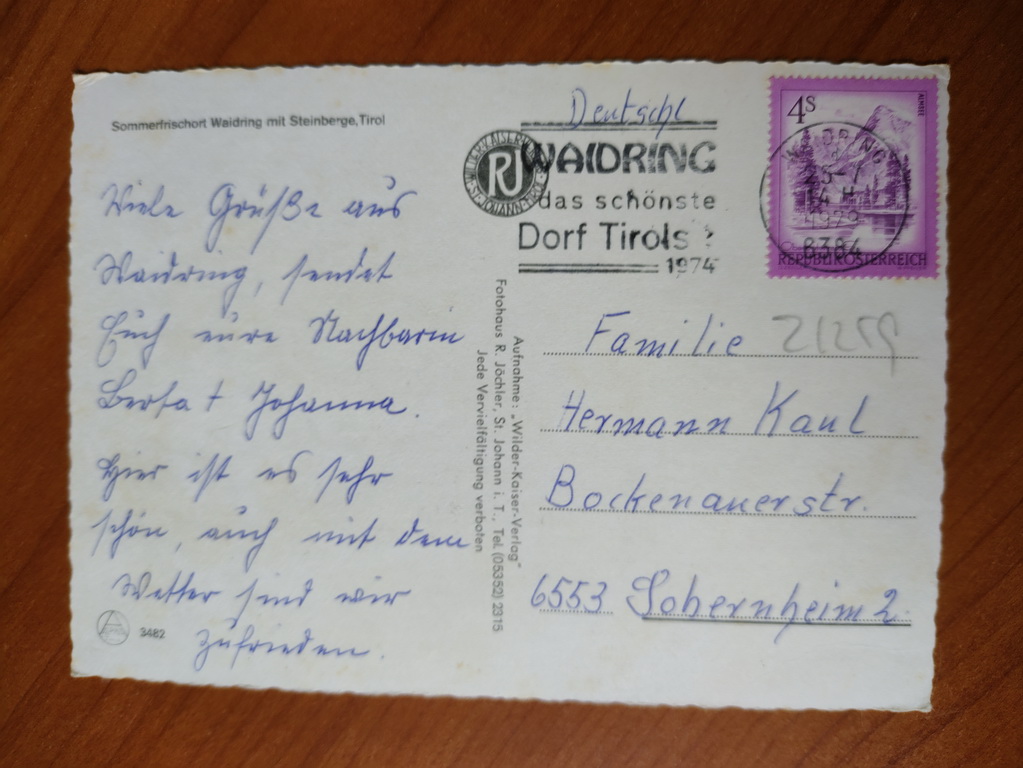 Sommerfrischort Waidring mit Steinberge, Tirol
Viele Grüße aus
Waidring, sendet
Euch eure Nachbarin
Berta + Johanna.
Hier ist es sehr
schön, auch mit dem
Wetter sind wir
zufrieden.
3482
Aufnahme: „Wilder-Kaiser-Verlag"
Fotohaus R. Jöchler, St. Johann i. T., Tel. (05352) 2315
Jede Vervielfältigung verboten
RJ
Deutschl
WAIDRING
das schönste
Dorf Tirols
1974
4S
ALMSEE
REPUBLIK ÖSTERREICH
WAIDRING
25-7
1979
6384
Familie
21259
Hermann Kaul
Bockenauerstr.
6553 Sobernheim 2.